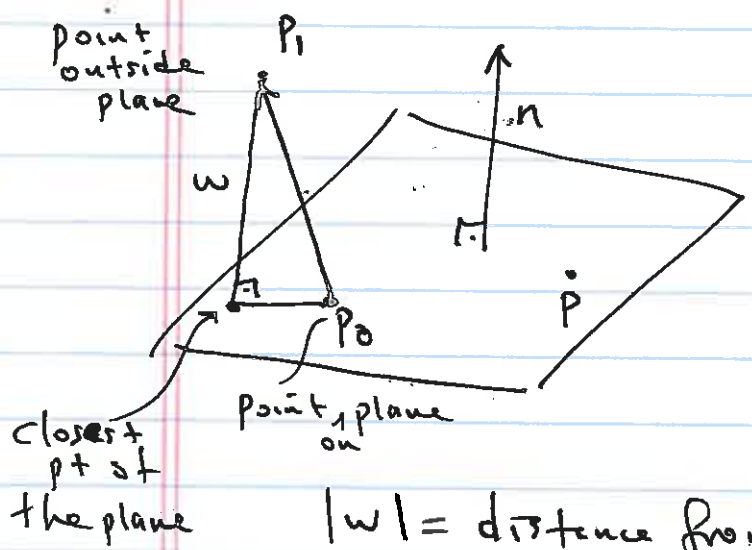 point
outside
plane
P₁
n
w
P
P₀
point on plane
closest
pt of
the plane
|w| = distance